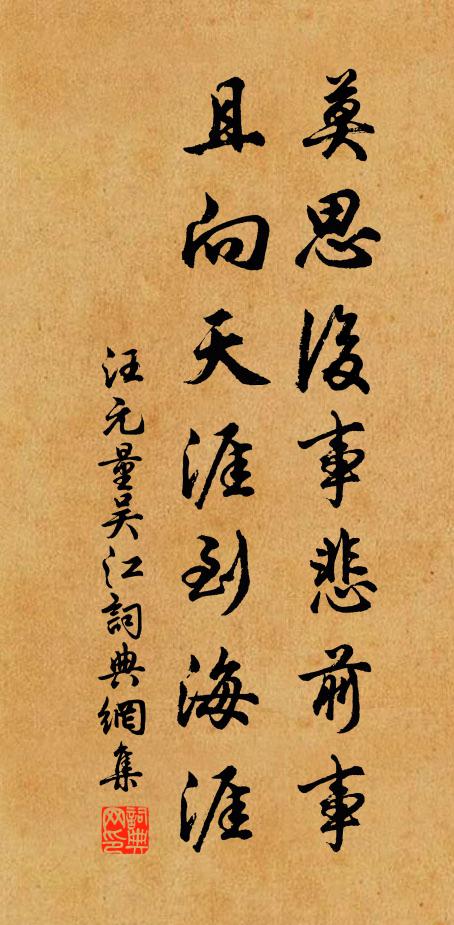 莫思後事悲前事
且向天涯到海涯
汪元量吴江詞典網集
詞典网印